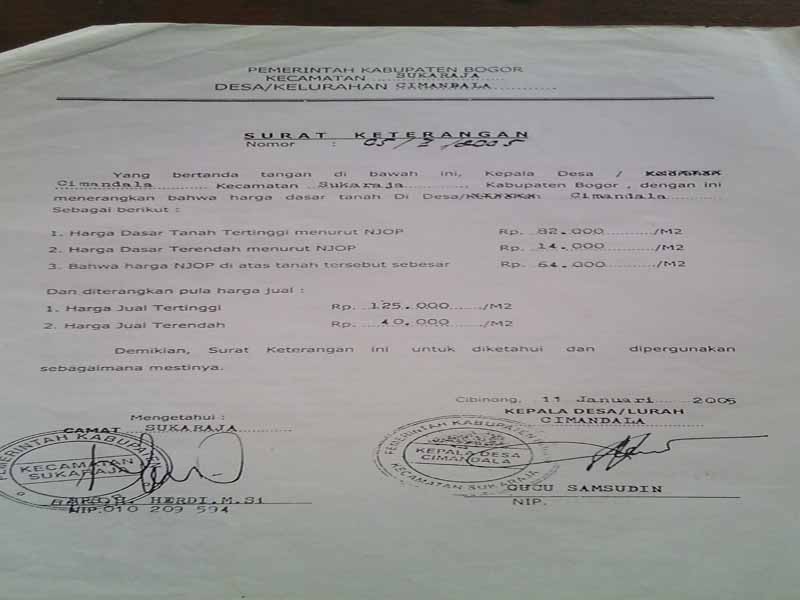 PEMERINTAH KABUPATEN BOGOR
KECAMATAN SUKARAJA
DESA/KELURAHAN CIMANDALA
SURAT KETERANGAN
Nomor : 05/ /2005
Yang bertanda tangan di bawah ini, Kepala Desa /
Cimandala Kecamatan Sukaraja Kabupaten Bogor, dengan ini
menerangkan bahwa harga dasar tanah Di Desa/ Cimandala
Sebagai berikut :
1. Harga Dasar Tanah Tertinggi menurut NJOP Rp. 82.000 /M2
2. Harga Dasar Terendah menurut NJOP Rp. 14.000 /M2
3. Bahwa harga NJOP di atas tanah tersebut sebesar Rp. 64.000 /M2
Dan diterangkan pula harga jual :
1. Harga Jual Tertinggi Rp. 125.000 /M2
2. Harga Jual Terendah Rp. 40.000 /M2
Demikian, Surat Keterangan ini untuk diketahui dan dipergunakan
sebagaimana mestinya.
Cibinong, 11 Januari 2005
Mengetahui :
CAMAT SUKARAJA
KEPALA DESA/LURAH
CIMANDALA
PEMERINTAH KABUPATEN
KECAMATAN
SUKARAJA
PEMERINTAH KABUPATEN
KEPALA DESA
CIMANDALA
KECAMATAN SUKARAJA
HERDI.M.Si
NIP.010 209 594
CUCU SAMSUDIN
NIP.